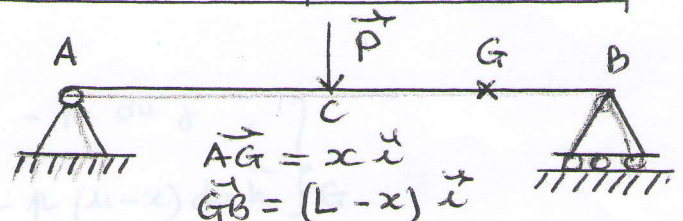 P⃗
A G B
C
A⃗G = x i⃗
G⃗B = (L - x) i⃗